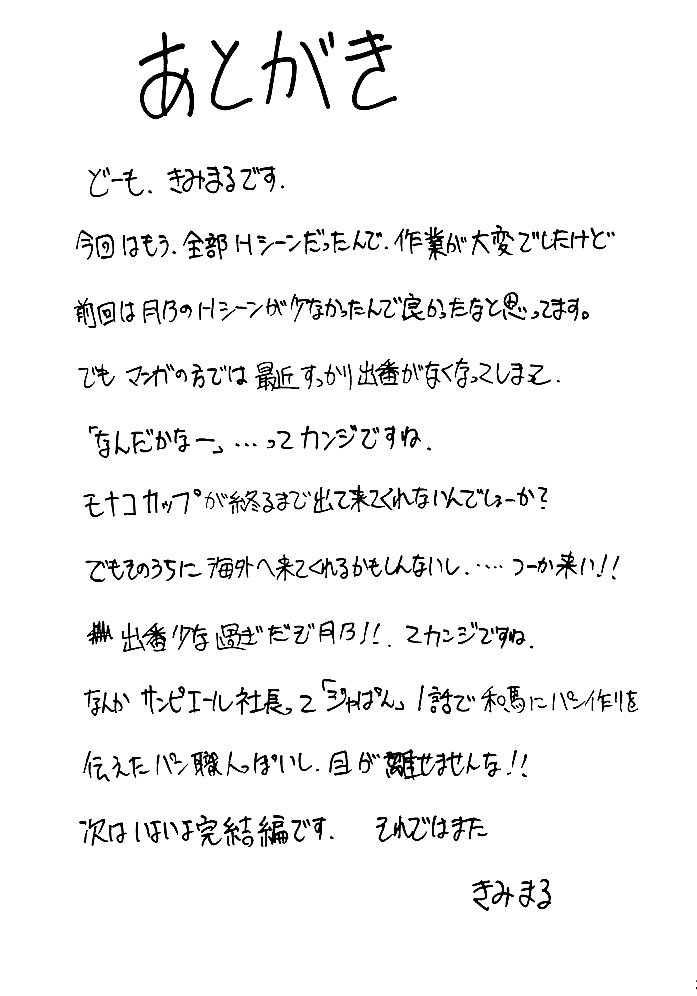 あとがき
どーも、きみまるです.
今回はもう、全部Hシーンだったんで、作業が大変でしたけど
前回は月乃のHシーンが少なかったんで良かったなと思ってます。
でも マンガの方では最近すっかり出番がなくなってしまって、
「なんだかなー」…ってカンジですね、
モナコカップが終るまで出て来てくれないんでしょーか?
でもそのうちに海外へ来てくれるかもしんないし、……つーか来い!!
出番少な過ぎだぞ月乃!!、てカンジですね、
なんか サンピエール社長って「ジャぱん」1話で和馬にパン作りを
伝えたパン職人っぽいし、目が離せませんな!!
次はいよいよ完結編です、 それではまた
きみまる